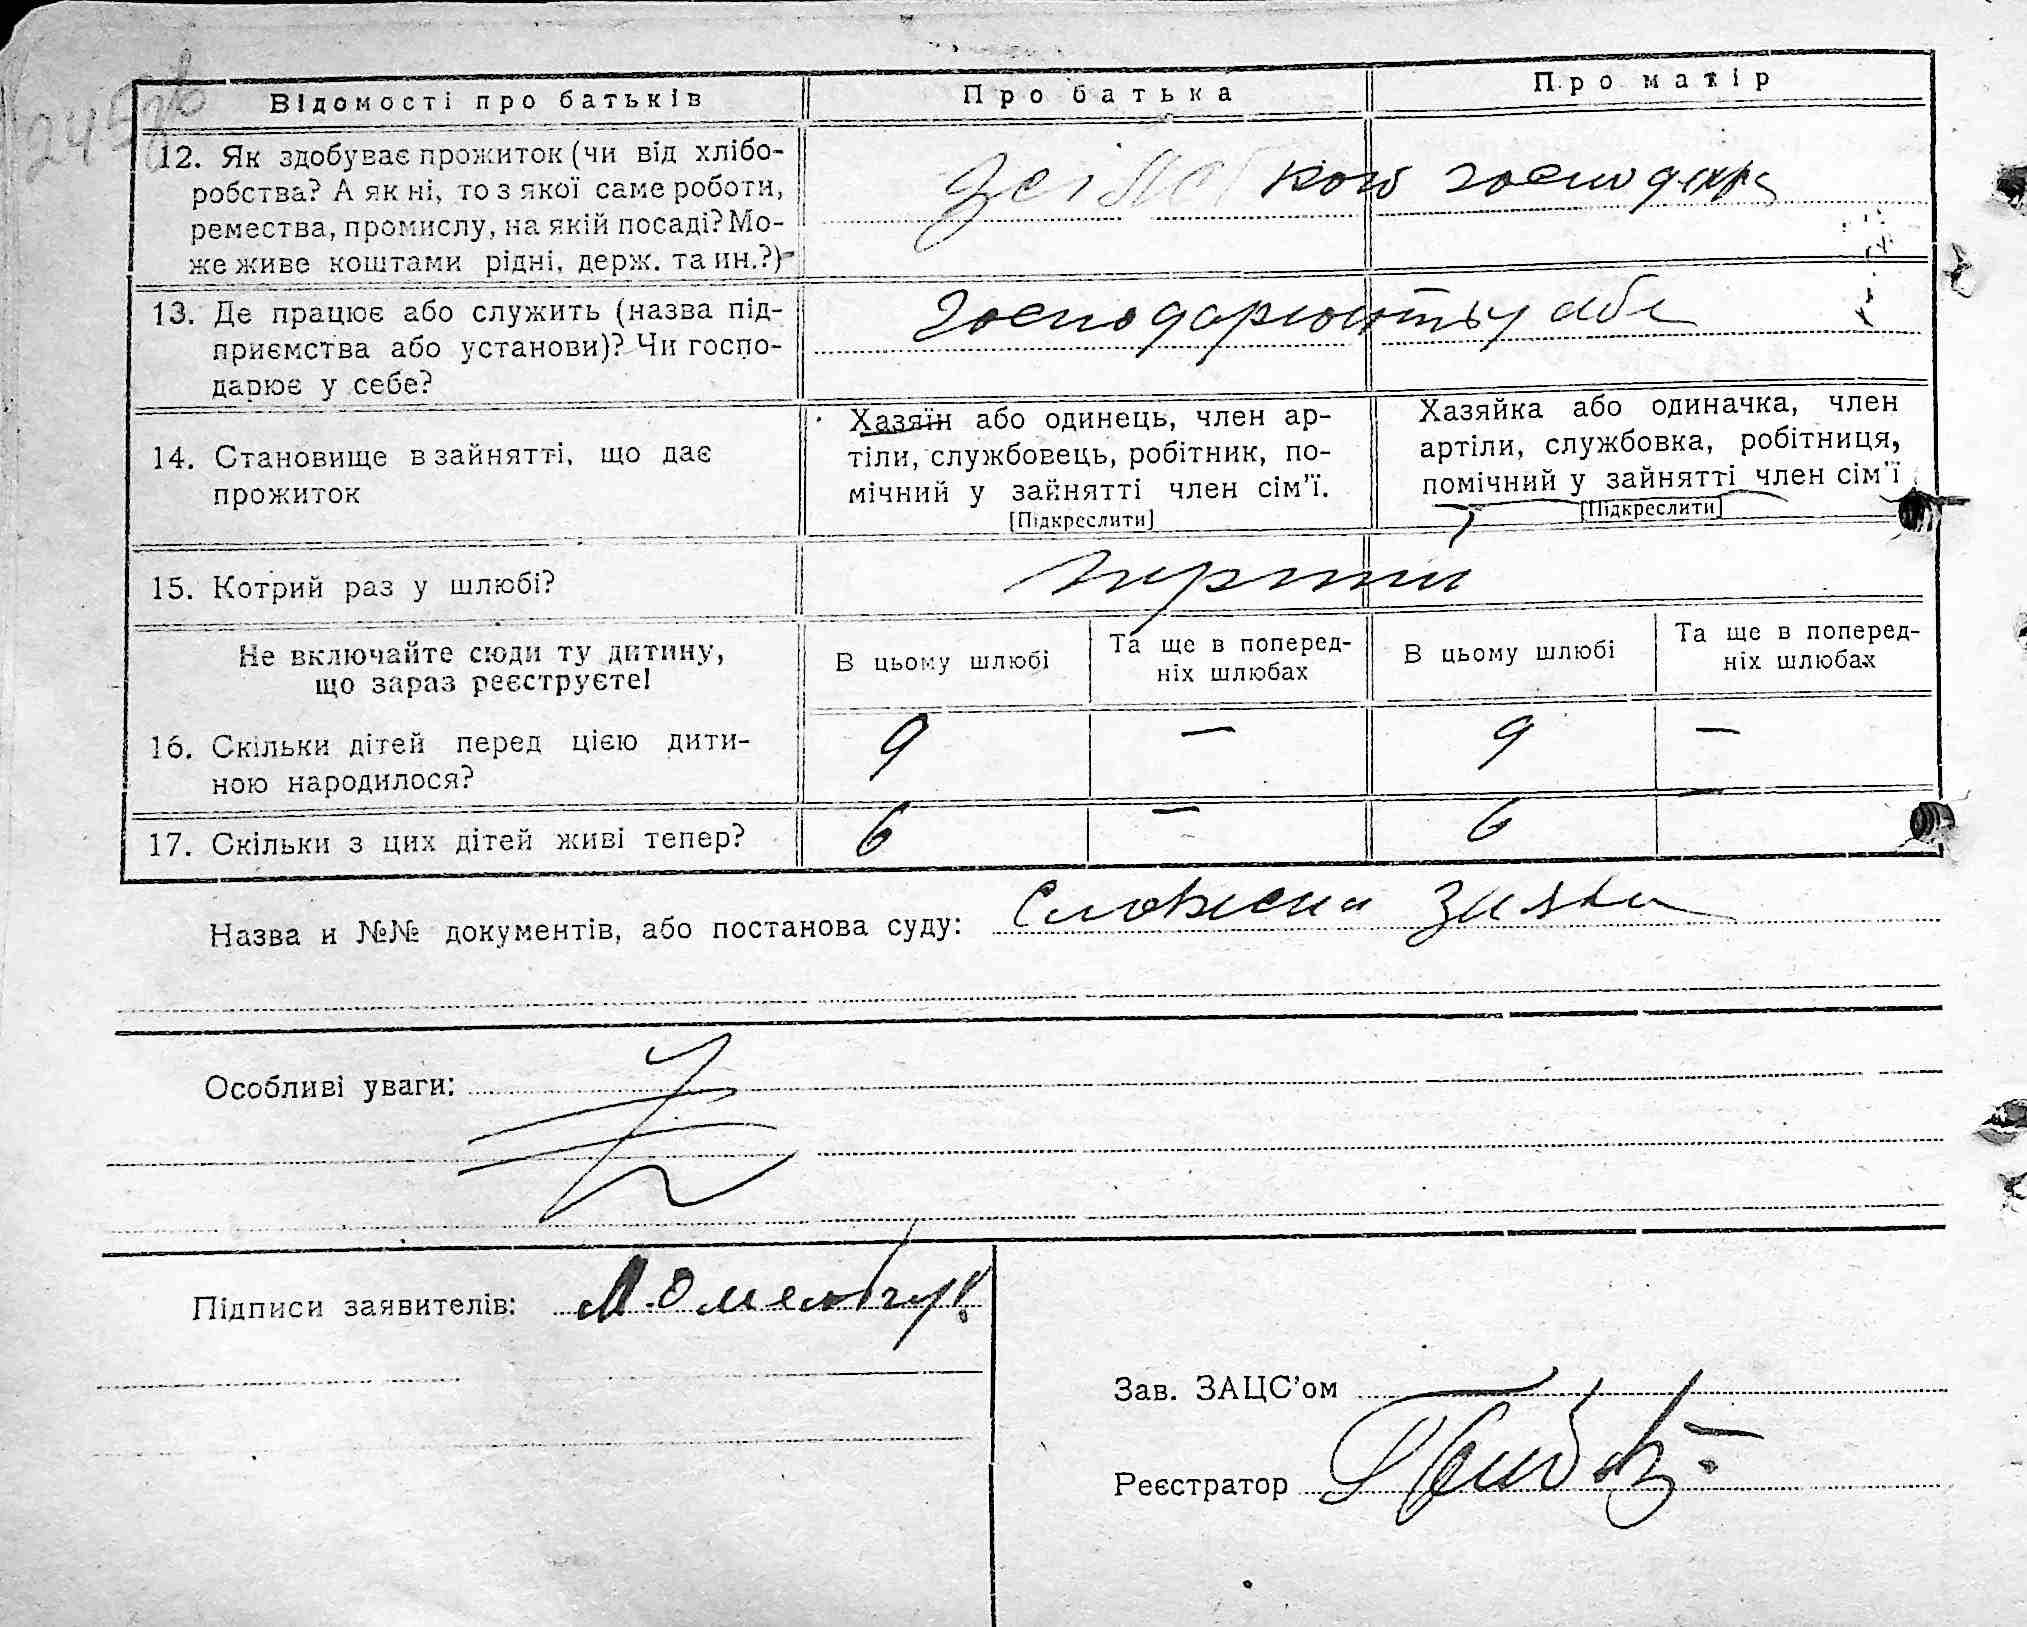 Відомості про батьків Про батька Про матір
12. Як здобуває прожиток (чи від хлібо-
робства? А як ні, то з якої саме роботи,
ремества, промислу, на якій посаді? Мо-
же живе коштами рідні, держ. та ин.?)
З сільського господар
13. Де працює або служить (назва під-
приємства або установи)? Чи госпо-
дарює у себе?
Господарюють у себе
14. Становище в зайнятті, що дає
прожиток
Хазяїн або одинець, член ар-
тіли, службовець, робітник, по-
мічний у зайнятті член сім'ї.
[Підкреслити]
Хазяйка або одиначка, член
артіли, службовка, робітниця,
помічний у зайнятті член сім'ї
[Підкреслити]
15. Котрий раз у шлюбі?
перший
Не включайте сюди ту дитину,
що зараз реєструєте!
В цьому шлюбі
Та ще в поперед-
ніх шлюбах
В цьому шлюбі
Та ще в поперед-
ніх шлюбах
16. Скільки дітей перед цією дити-
ною народилося?
9 — 9 —
17. Скільки з цих дітей живі тепер? 6 — 6 —
Назва и №№ документів, або постанова суду: Словесна заява
Особливі уваги:
Підписи заявителів: М. Омельчук
Зав. ЗАЦС'ом
Реєстратор